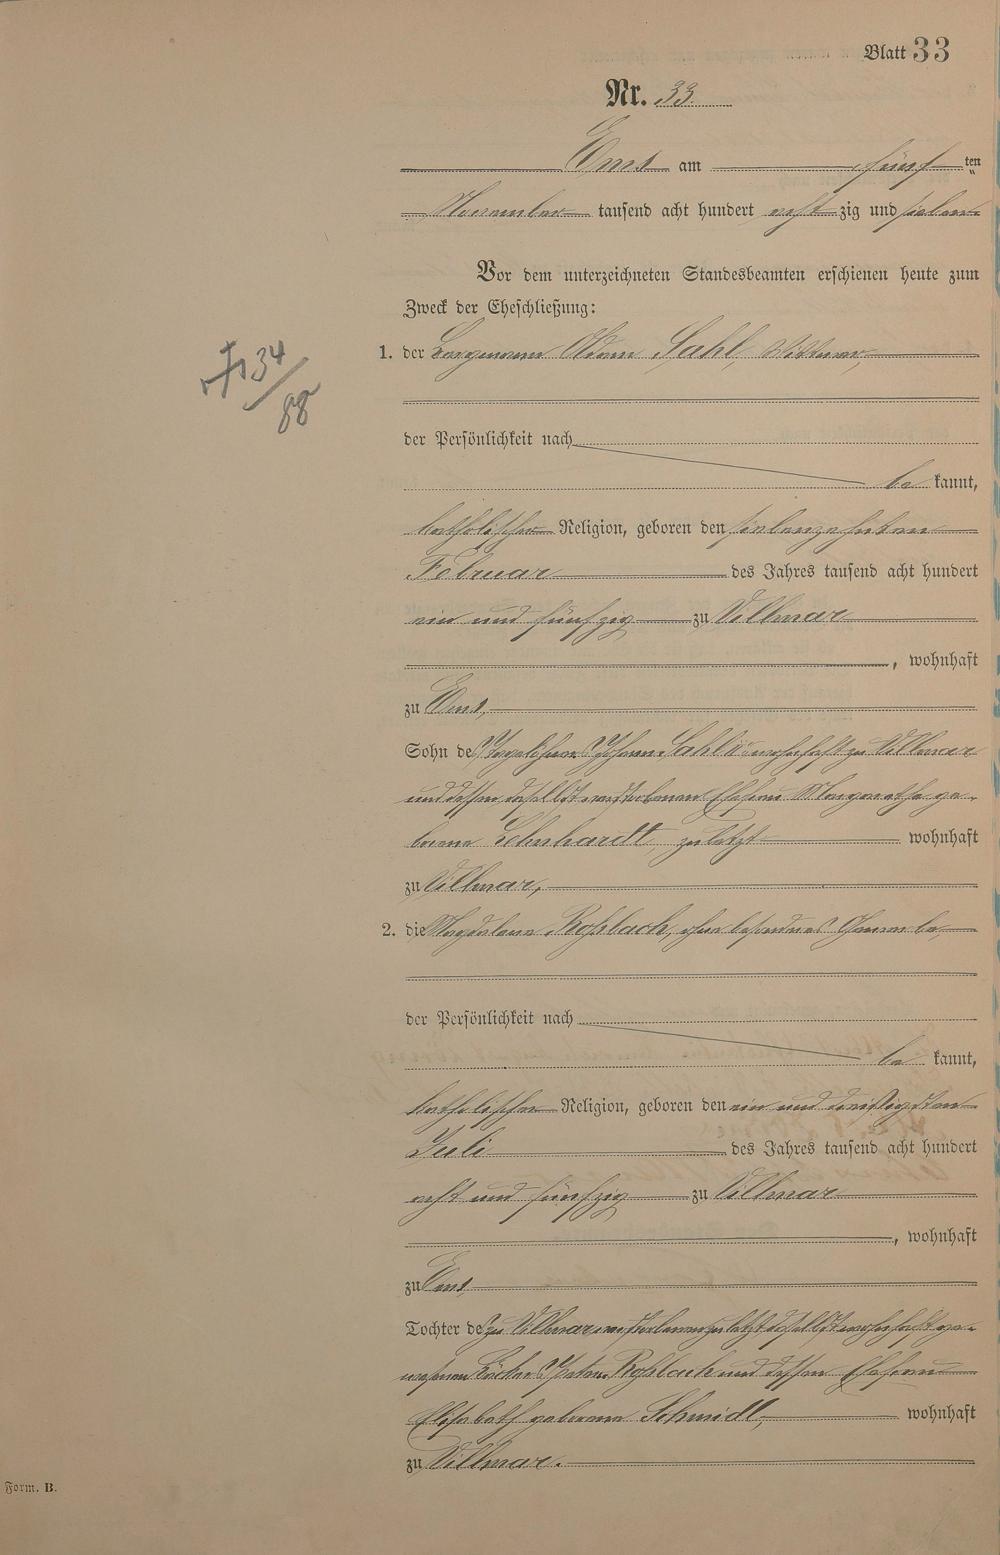 Blatt 33
Nr. 33.
Ems am fünf ten
November tausend acht hundert acht zig und sieben
Vor dem unterzeichneten Standesbeamten erschienen heute zum
Zweck der Eheschließung:
1. der Bergmann Adam Sahl, Wittwer,
der Persönlichkeit nach
be kannt,
katholischer Religion, geboren den siebenzehnten
Februar des Jahres tausend acht hundert
ein und fünfzig zu Villmar
, wohnhaft
zu Ems,
Sohn des Tagelöhners Johann Sahl wohnhaft zu Villmar
und dessen daselbst verstorbenen Ehefrau Margarethe ge-
borene Lehnhardt, zuletzt wohnhaft
zu Villmar,
2. die Magdalena Roßbach, ohne besonderes Gewerbe,
der Persönlichkeit nach
be kannt,
katholischer Religion, geboren den ein und dreißigsten
Juli des Jahres tausend acht hundert
acht und fünfzig zu Villmar
, wohnhaft
zu Ems
Tochter des zu Villmar verstorbenen zuletzt daselbst wohnhaft ge-
wesenen Bäcker Peter Roßbach und dessen Ehefrau
Elisabeth geborene Schmidt, wohnhaft
zu Villmar.
34/88
Form. B.